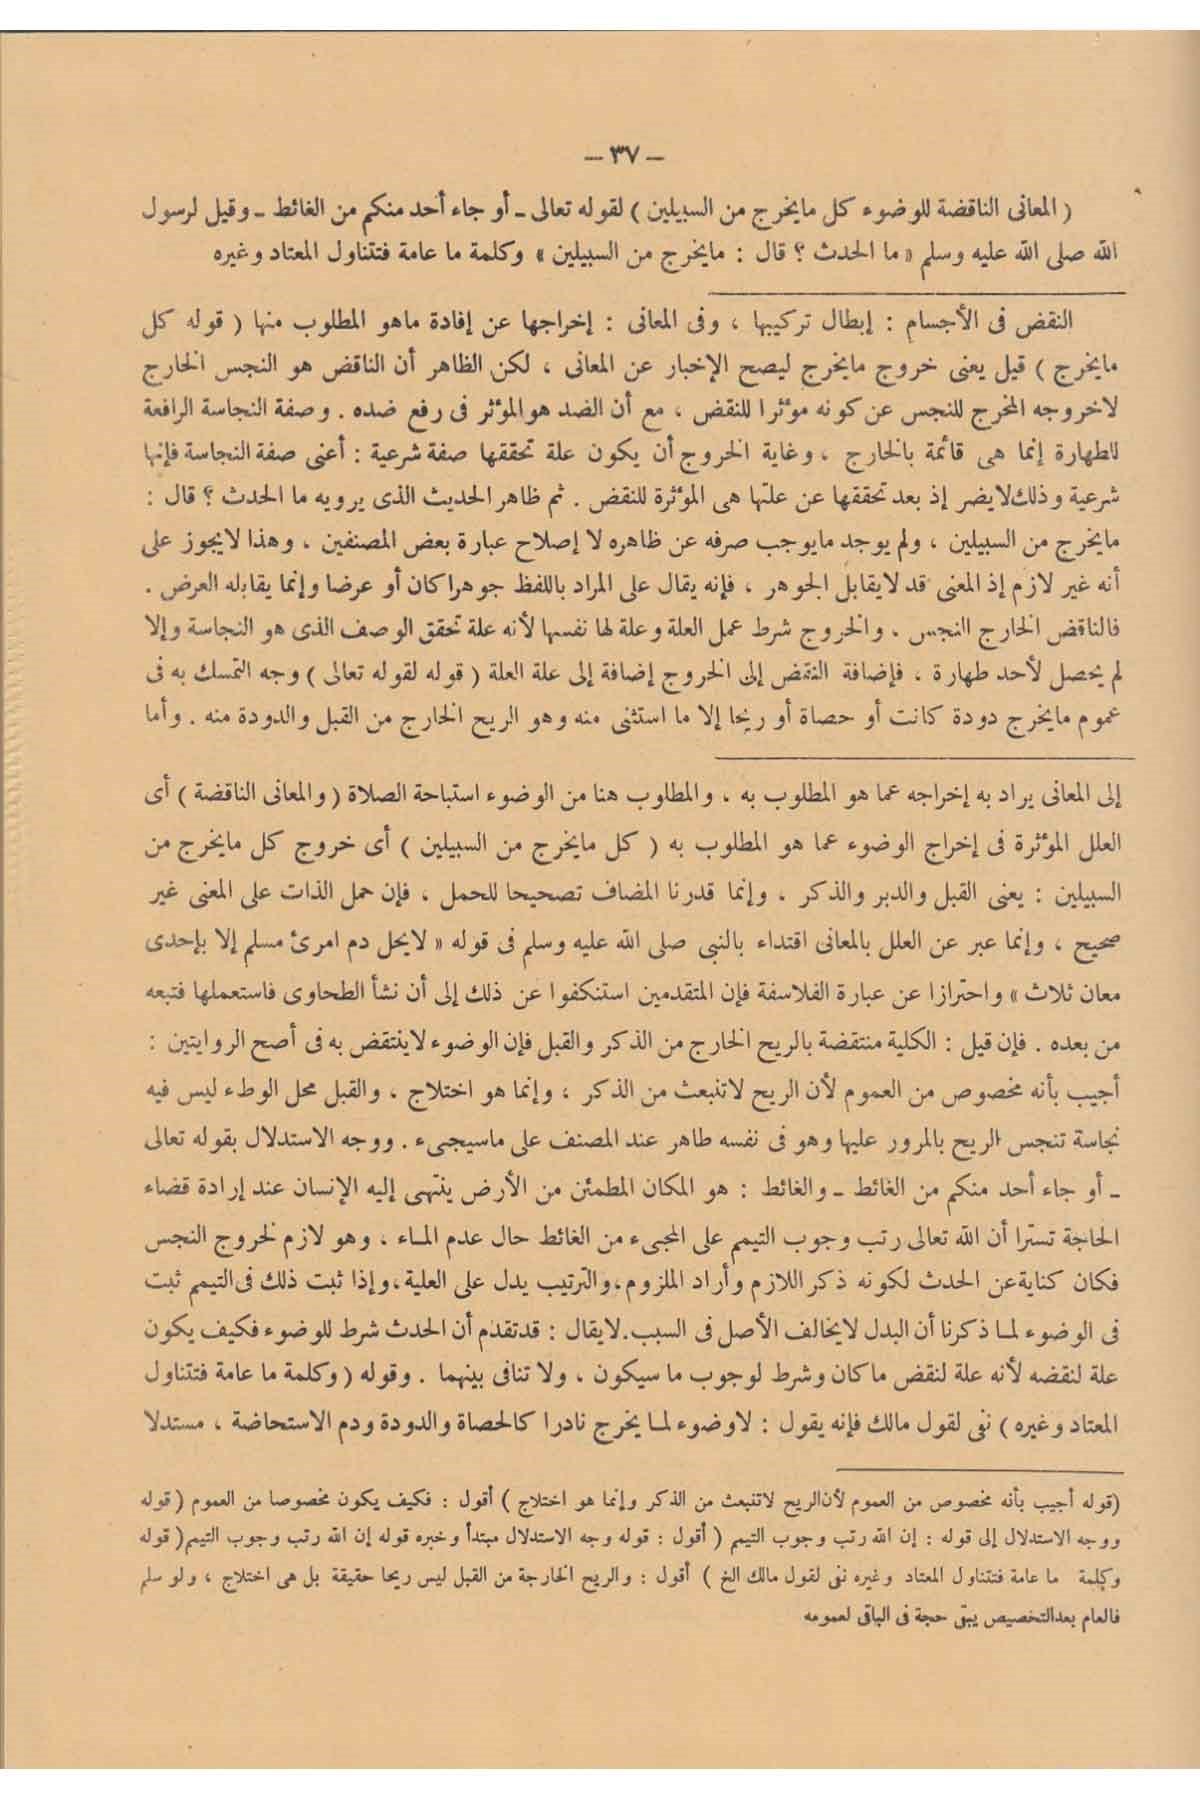 — ٣٧ —
( المعانى الناقضة للوضوء كل مايخرج من السبيلين ) لقوله تعالى ـ أو جاء أحد منكم من الغائط ـ وقيل لرسول
الله صلى الله عليه وسلم « ما الحدث ؟ قال : مايخرج من السبيلين » وكلمة ما عامة فتتناول المعتاد وغيره
النقض فى الأجسام : إبطال تركيبها ، وفى المعانى : إخراجها عن إفادة ماهو المطلوب منها ( قوله كل
مايخرج ) قيل يعنى خروج مايخرج ليصح الإخبار عن المعانى ، لكن الظاهر أن الناقض هو النجس الخارج
لاخروجه المخرج للنجس عن كونه مؤثرا للنقض ، مع أن الضد هو المؤثر فى رفع ضده . وصفة النجاسة الرافعة
للطهارة إنما هى قائمة بالخارج ، وغاية الخروج أن يكون علة تحققها صفة شرعية : أعنى صفة النجاسة فإنها
شرعية وذلك لايضر إذ بعد تحققها عن علتها هى المؤثرة للنقض . ثم ظاهر الحديث الذى يرويه ما الحدث ؟ قال :
مايخرج من السبيلين ، ولم يوجد مايوجب صرفه عن ظاهره لا إصلاح عبارة بعض المصنفين ، وهذا لايجوز على
أنه غير لازم إذ المعنى قد لايقابل الجوهر ، فإنه يقال على المراد باللفظ جوهرا كان أو عرضا وإنما يقابله العرض .
فالناقض الخارج النجس ، والخروج شرط عمل العلة وعلة لها نفسها لأنه علة تحقق الوصف الذى هو النجاسة وإلا
لم يحصل لأحد طهارة ، فإضافة النقض إلى الخروج إضافة إلى علة العلة ( قوله لقوله تعالى ) وجه التمسك به فى
عموم مايخرج دودة كانت أو حصاة أو ريحا إلا ما استثنى منه وهو الريح الخارج من القبل والدودة منه . وأما
إلى المعانى يراد به إخراجه عما هو المطلوب به ، والمطلوب هنا من الوضوء استباحة الصلاة ( والمعانى الناقضة ) أى
العلل المؤثرة فى إخراج الوضوء عما هو المطلوب به ( كل مايخرج من السبيلين ) أى خروج كل مايخرج من
السبيلين : يعنى القبل والدبر والذكر ، وإنما قدرنا المضاف تصحيحا للحمل ، فإن حمل الذات على المعنى غير
صحيح ، وإنما عبر عن العلل بالمعانى اقتداء بالنبى صلى الله عليه وسلم فى قوله « لايحل دم امرئ مسلم إلا بإحدى
معان ثلاث » واحترازا عن عبارة الفلاسفة فإن المتقدمين استنكفوا عن ذلك إلى أن نشأ الطحاوى فاستعملها فتبعه
من بعده . فإن قيل : الكلية منتقضة بالريح الخارج من الذكر والقبل فإن الوضوء لاينتقض به فى أصح الروايتين :
أجيب بأنه مخصوص من العموم لأن الريح لاتنبعث من الذكر ، وإنما هو اختلاج ، والقبل محل الوطء ليس فيه
نجاسة تنجس الريح بالمرور عليها وهو فى نفسه طاهر عند المصنف على ماسيجىء . ووجه الاستدلال بقوله تعالى
ـ أو جاء أحد منكم من الغائط ـ والغائط : هو المكان المطمئن من الأرض ينتهى إليه الإنسان عند إرادة قضاء
الحاجة تسترا أن الله تعالى رتب وجوب التيمم على المجىء من الغائط حال عدم المـاء ، وهو لازم لخروج النجس
فكان كناية عن الحدث لكونه ذكر اللازم وأراد الملزوم، والترتيب يدل على العلية، وإذا ثبت ذلك فى التيمم ثبت
فى الوضوء لمـا ذكرنا أن البدل لايخالف الأصل فى السبب. لايقال : قد تقدم أن الحدث شرط للوضوء فكيف يكون
علة لنقضه لأنه علة لنقض ما كان وشرط لوجوب ما سيكون ، ولا تنافى بينهما . وقوله ( وكلمة ما عامة فتتناول
المعتاد وغيره ) نفى لقول مالك فإنه يقول : لاوضوء لمـا يخرج نادرا كالحصاة والدودة ودم الاستحاضة ، مستدلا
(قوله أجيب بأنه مخصوص من العموم لأن الريح لاتنبعث من الذكر وإنما هو اختلاج ) أقول : فكيف يكون مخصوصا من العموم ( قوله
ووجه الاستدلال إلى قوله : إن الله رتب وجوب التيمم ( أقول : قوله وجه الاستدلال مبتدأ وخبره قوله إن الله رتب وجوب التيمم( قوله
وكلمة ما عامة فتتناول المعتاد وغيره نفى لقول مالك الخ ) أقول : والريح الخارجة من القبل ليس ريحا حقيقة بل هى اختلاج ، ولو سلم
فالعام بعد التخصيص يبقى حجة فى الباقى لعمومه